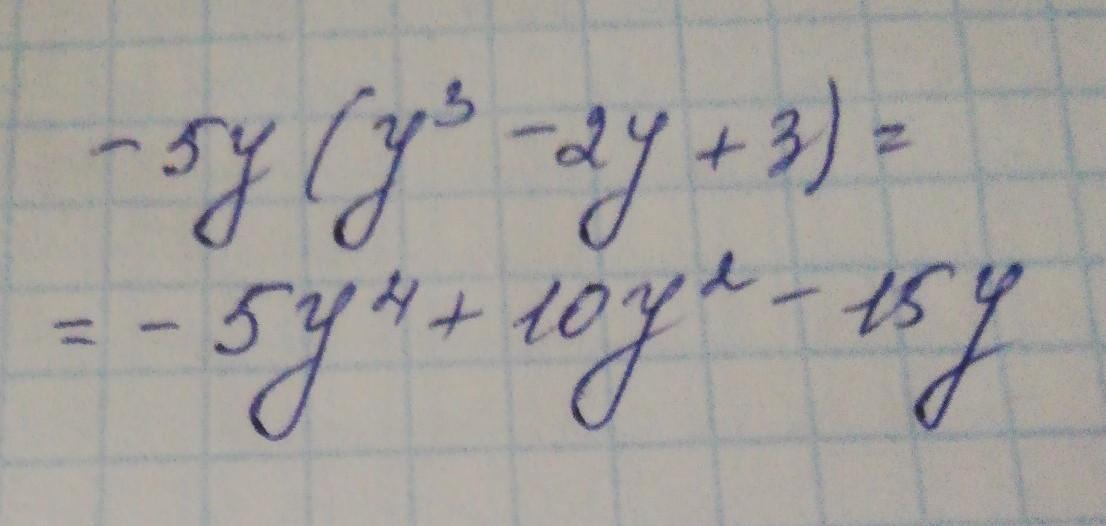 -5y(y³ -2y+3)=
=-5y⁴+10y²-15y